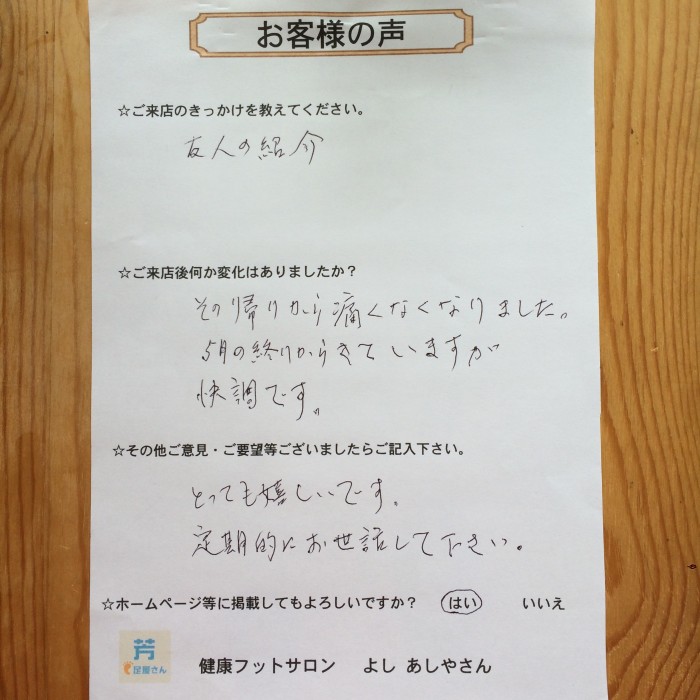 お客様の声
☆ご来店のきっかけを教えてください。
友人の紹介
☆ご来店後何か変化はありましたか？
その帰りから痛くなくなりました。
5月の終りからきていますが
快調です。
☆その他ご意見・ご要望等ございましたらご記入下さい。
とっても嬉しいです。
定期的にお世話して下さい。
☆ホームページ等に掲載してもよろしいですか？ はい いいえ
芳
足屋さん
健康フットサロン よし あしやさん